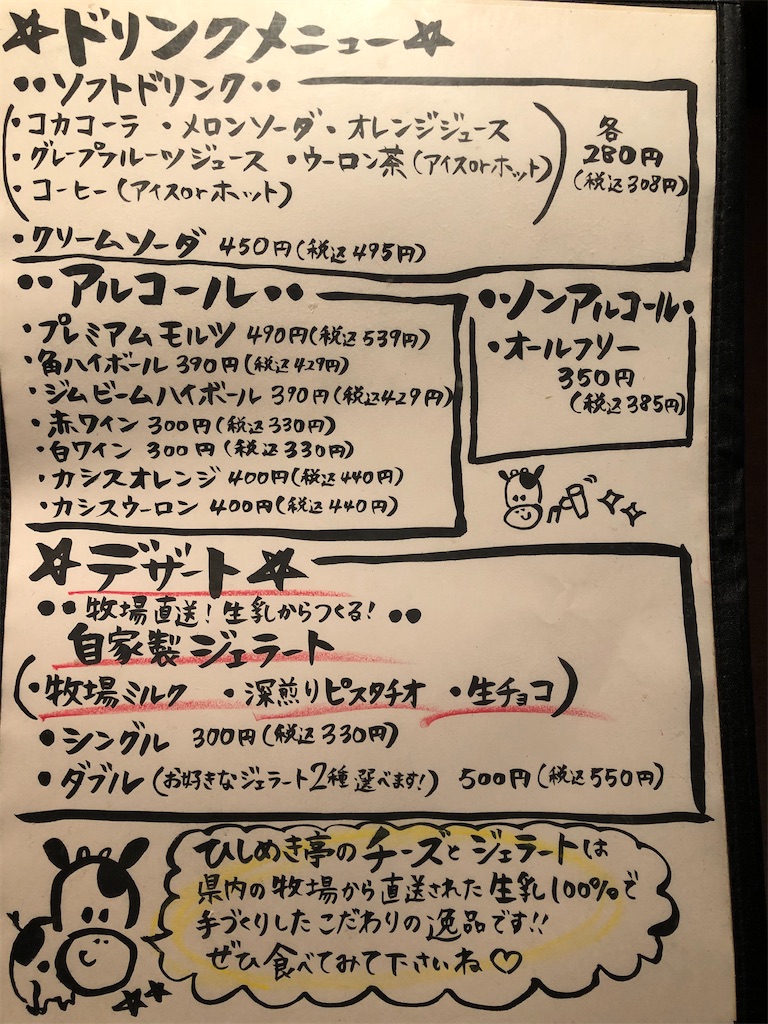 ☆ドリンクメニュー☆
••ソフトドリンク••
・コカコーラ ・メロンソーダ ・オレンジジュース
・グレープフルーツジュース ・ウーロン茶(アイスorホット)
・コーヒー(アイスorホット)
各
280円
(税込308円)
・クリームソーダ 450円(税込495円)
••アルコール••
・プレミアムモルツ 490円(税込539円)
・角ハイボール 390円(税込429円)
・ジムビームハイボール 390円(税込429円)
・赤ワイン 300円(税込330円)
・白ワイン 300円(税込330円)
・カシスオレンジ 400円(税込440円)
・カシスウーロン 400円(税込440円)
••ノンアルコール••
・オールフリー
350円
(税込385円)
☆デザート☆
••牧場直送!生乳からつくる!••
自家製ジェラート
(・牧場ミルク ・深煎りピスタチオ ・生チョコ)
• シングル 300円(税込330円)
• ダブル(お好きなジェラート2種選べます!) 500円(税込550円)
ひしめき亭のチーズとジェラートは
県内の牧場から直送された生乳100%で
手づくりしたこだわりの逸品です!!
ぜひ食べてみて下さいね♡